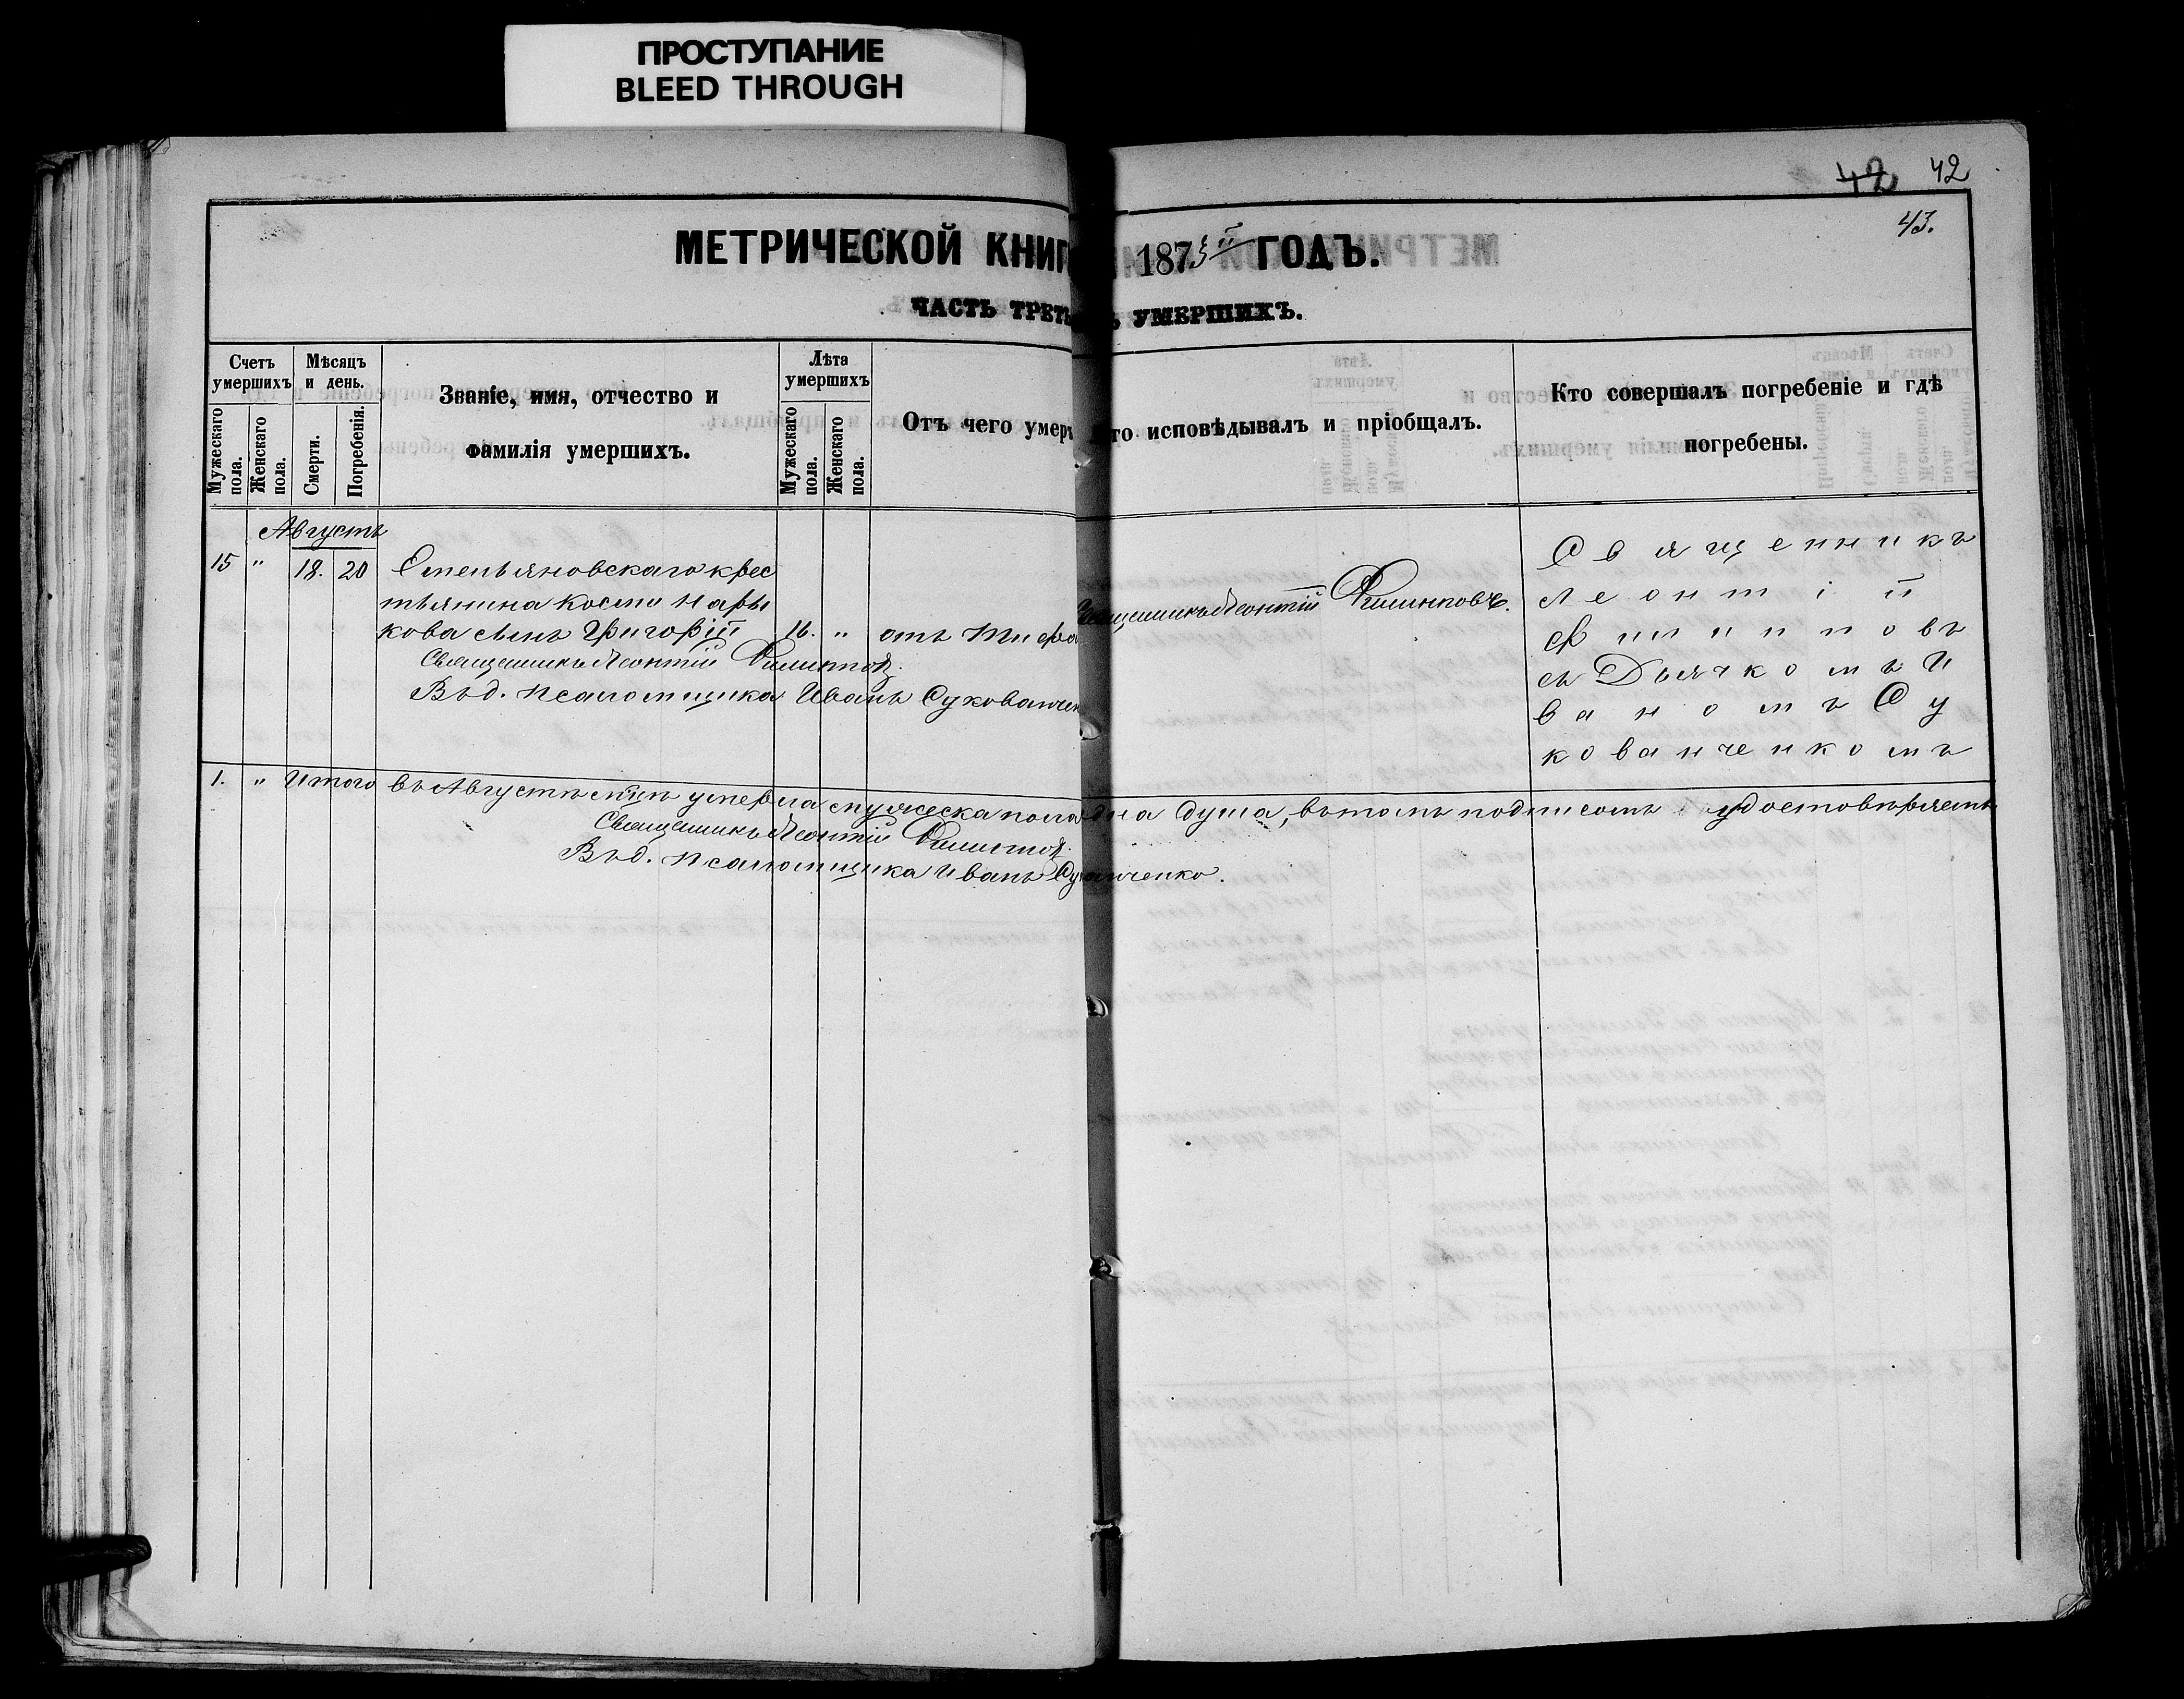 ПРОСТУПАНИЕ
BLEED THROUGH
42 42
43.
МЕТРИЧЕСКОЙ КНИГ 1873й ГОДЪ.
ЧАСТЬ ТРЕТЬ Ъ УМЕРШИХЪ.
Счетъ умершихъ
Мужескаго пола.
Женскаго пола.
Мѣсяцъ и день.
Смерти.
Погребенія.
Званіе, имя, отчество и
фамилія умершихъ.
Лѣта умершихъ
Мужескаго пола.
Женскаго пола.
Отъ чего умеръ то исповѣдывалъ и пріобщалъ.
Кто совершалъ погребеніе и гдѣ
погребены.
Августъ
15 " 18. 20 Емельяновскаго крес
тьянина Косми Нары
кова сынъ Григорій 16. " отъ тифа
Священникъ Леонтій Филипповъ.
Вѣд. псаломщика Иванъ Сукованчен
Священникъ Леонтій Филипповъ.
Священникъ
Леонтій
Филипповъ
съ Дьячкомъ И
ваномъ Су
кованченкомъ
1. " Итого въ Августѣ умерла мужеска пола дна душа, въ томъ подписомъ удостовѣряемъ
Священникъ Леонтій Филипповъ.
Вѣд. псаломщика Иванъ Су анченко.